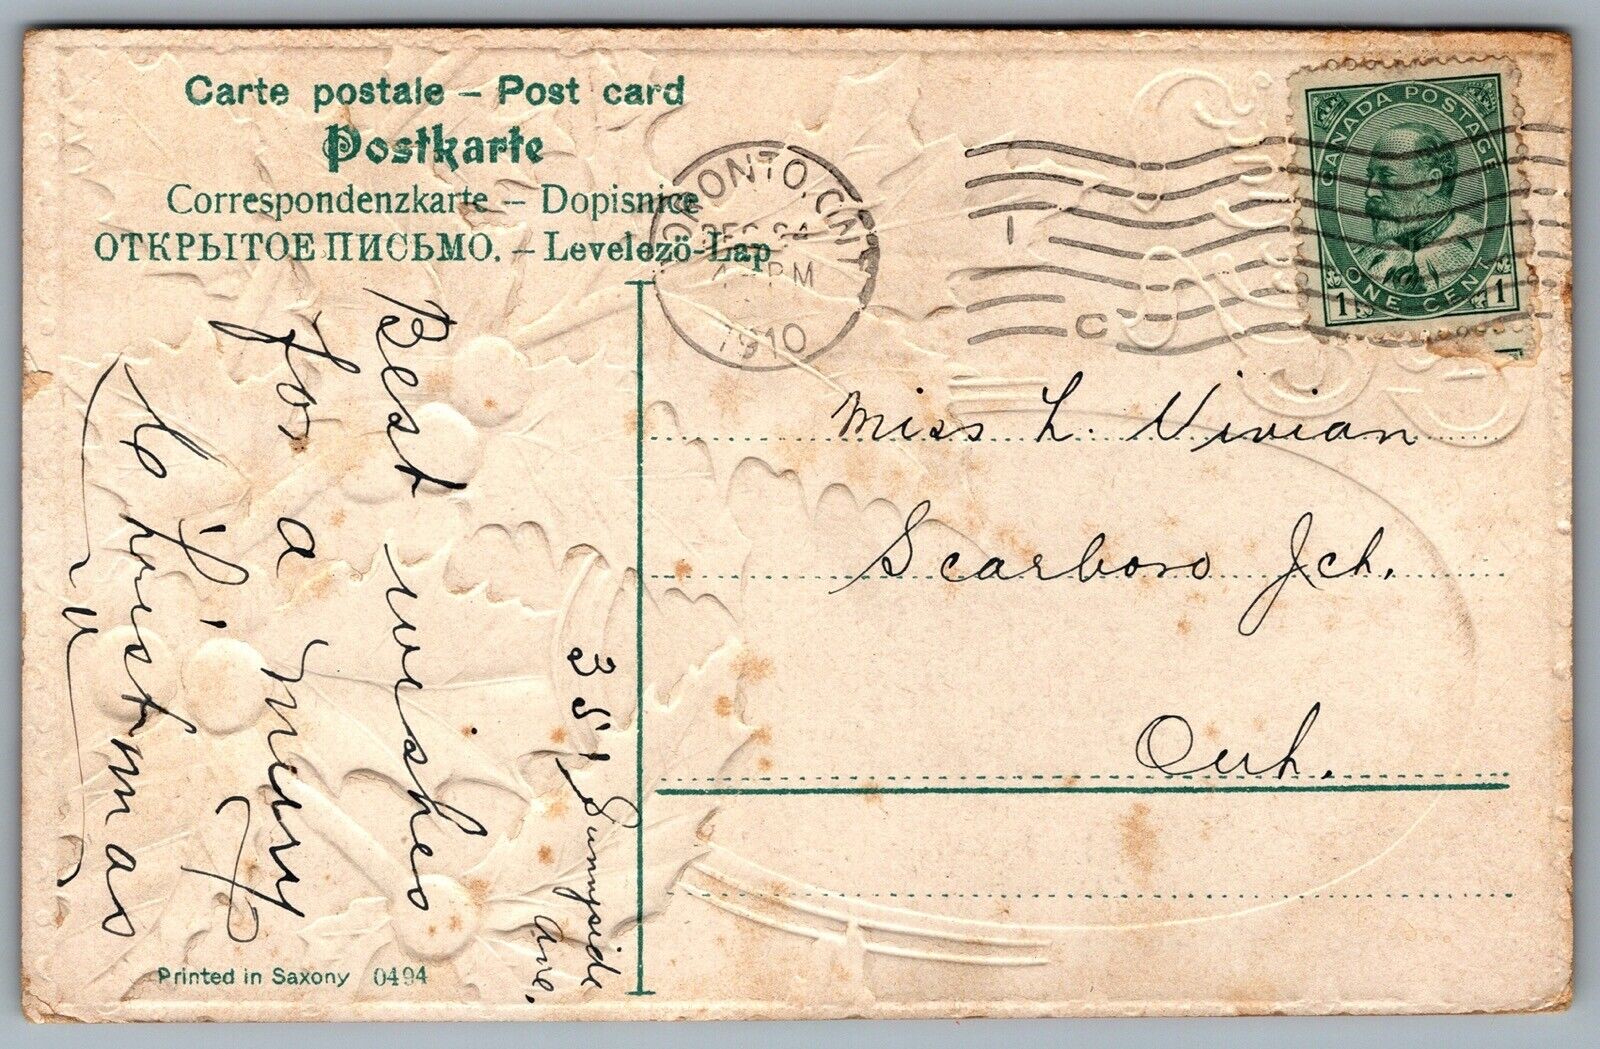 Carte postale – Post card
Postkarte
Correspondenzkarte – Dopisnice
ОТКРЫТОЕ ПИСЬМО. – Levelező-Lap
TORONTO, ONT
DEC 24
PM
1910
1
C
CANADA POSTAGE
ONE CENT
1 1
Miss L. Vivian
Scarboro Jch.
Ont.
Best wishes
for a Merry
Christmas
351 Sunnyside
Ave.
Printed in Saxony 0494